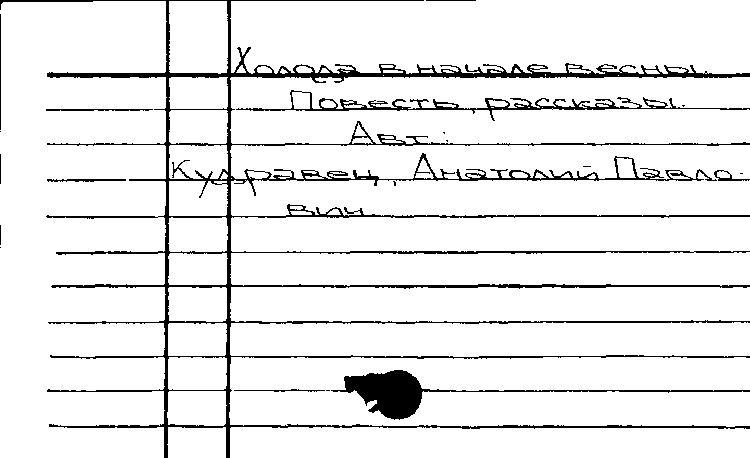 Холода в начале весны.
Повесть, рассказы.
Авт.:
Кудравец, Анатолий Павло-
вич.